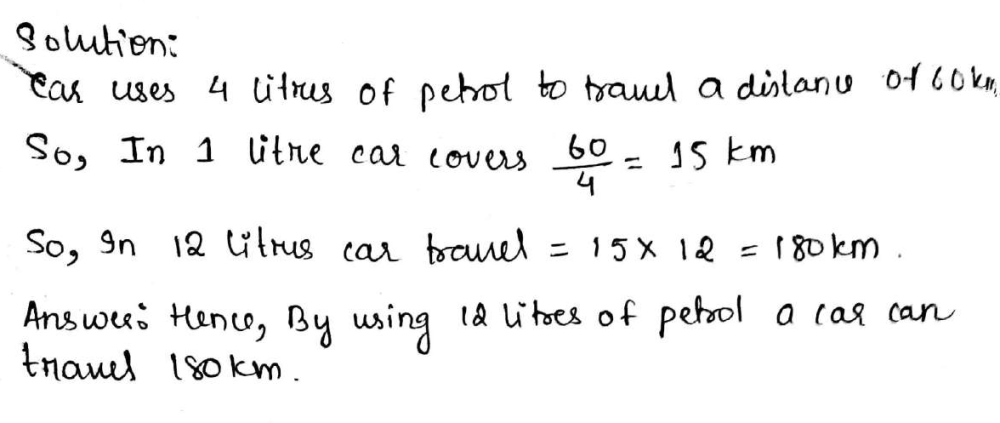 Solution:
Car uses 4 litres of petrol to travel a distance of 60 km
So, In 1 litre car covers 60/4 = 15 km
So, In 12 litres car travel = 15 × 12 = 180 km.
Answer: Hence, By using 12 litres of petrol a car can
travel 180 km.